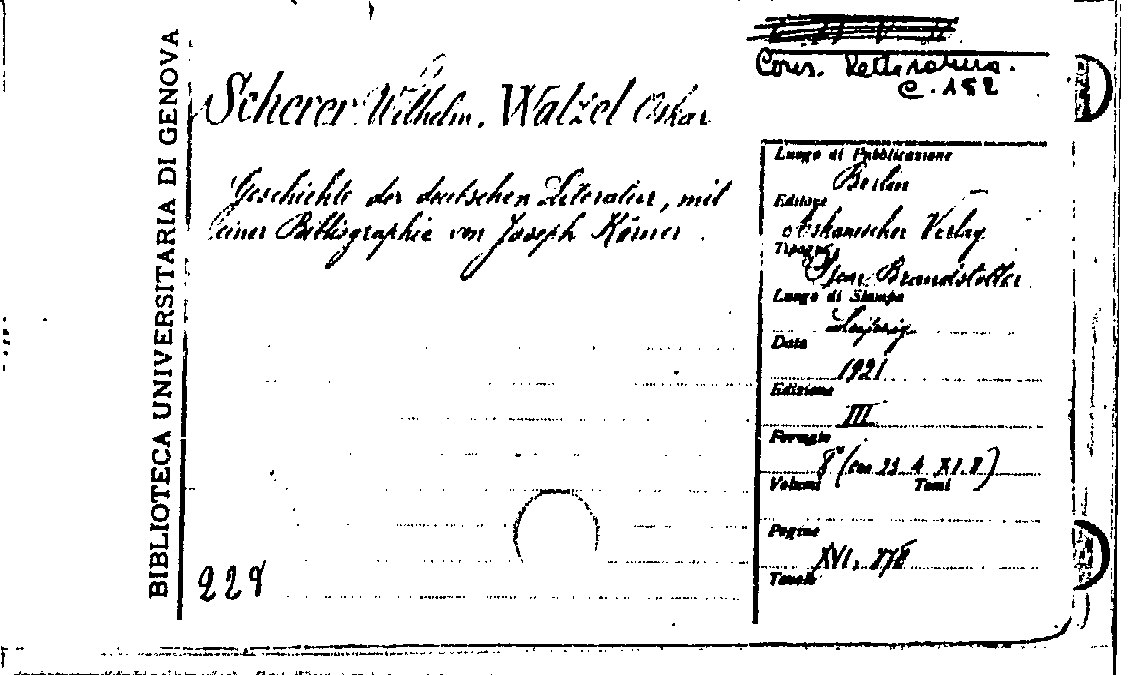 BIBLIOTECA UNIVERSITARIA DI GENOVA
Cons. Letteratura.
C. 152
Scherer Wilhelm, Walzel Oskar
Geschichte der deutschen Literatur, mit
einer Bibliographie von Joseph Körner.
228
Luogo di Pubblicazione
Berlin
Editore
Askanischer Verlag
Tipogr.
Oscar Brandstetter
Luogo di Stampa
Leipzig
Data
1921
Edizione
III
Formato
8° (cm 23 4 XI. 8)
Volumi Tomi
Pagine
XVI, 878
Tavole